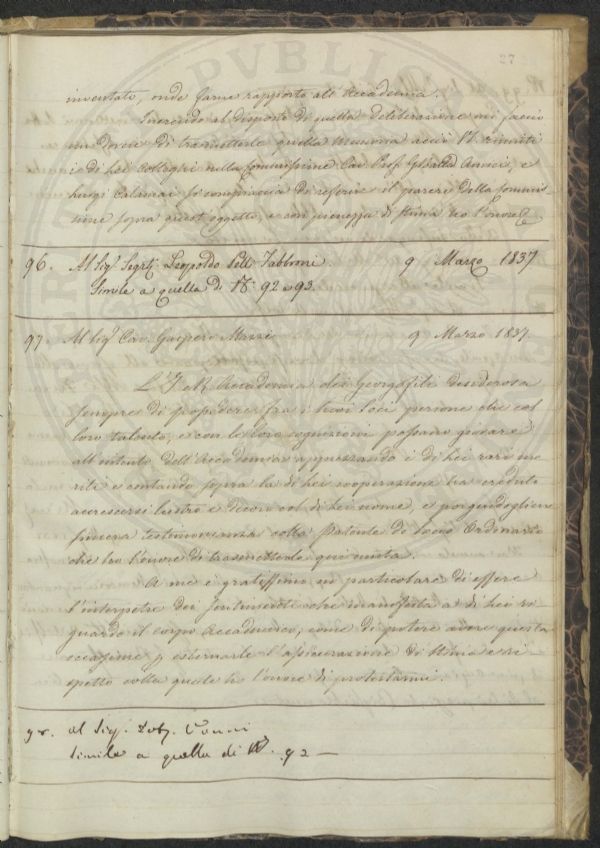 27
inventate, onde farne rapporto all'Accademia.
Inerendo al disposto di quella deliberazione mi faccio
un dovere di trasmetterle quella Memoria acciò V. S. riuniti
i di Lei Colleghi nella Commissione Cav. Prof.
Luigi Calamai si compiaccia di referire il parere della Commis
sione sopra quest'oggetto, e con pienezza di stima ho l'onore
96. Al Sig. Segr. Leopoldo Pell. Fabbroni. 9 Marzo 1837
Simile a quella di N. 92 e 93.
97. Al Sig. Cav. Gaspero Mazzi 9 Marzo 1837
L'I. e R. Accademia dei Georgofili desiderosa
sempre di possedere fra i suoi Soci persone che col
loro talento, e con le loro cognizioni possano giovare
all'intento dell'Accademia apprezzando i di Lei rari me
riti e contando sopra la di Lei cooperazione ha creduto
accrescersi lustro e decoro col di Lei nome, e porgendogliene
sincera testimonianza colla Patente di Socio Ordinario
che ho l'onore di trasmetterle qui unita.
A me è gratissimo in particolare di essere
l'interpetre dei sentimenti che manifesta a di Lei ri
guardo il corpo Accademico, come di potere avere questa
occasione p esternarle l'assicurazione di stima e ri
spetto colla quale ho l'onore di protestarmi.
98. al Sig.
Simile a quella di N. 92 —